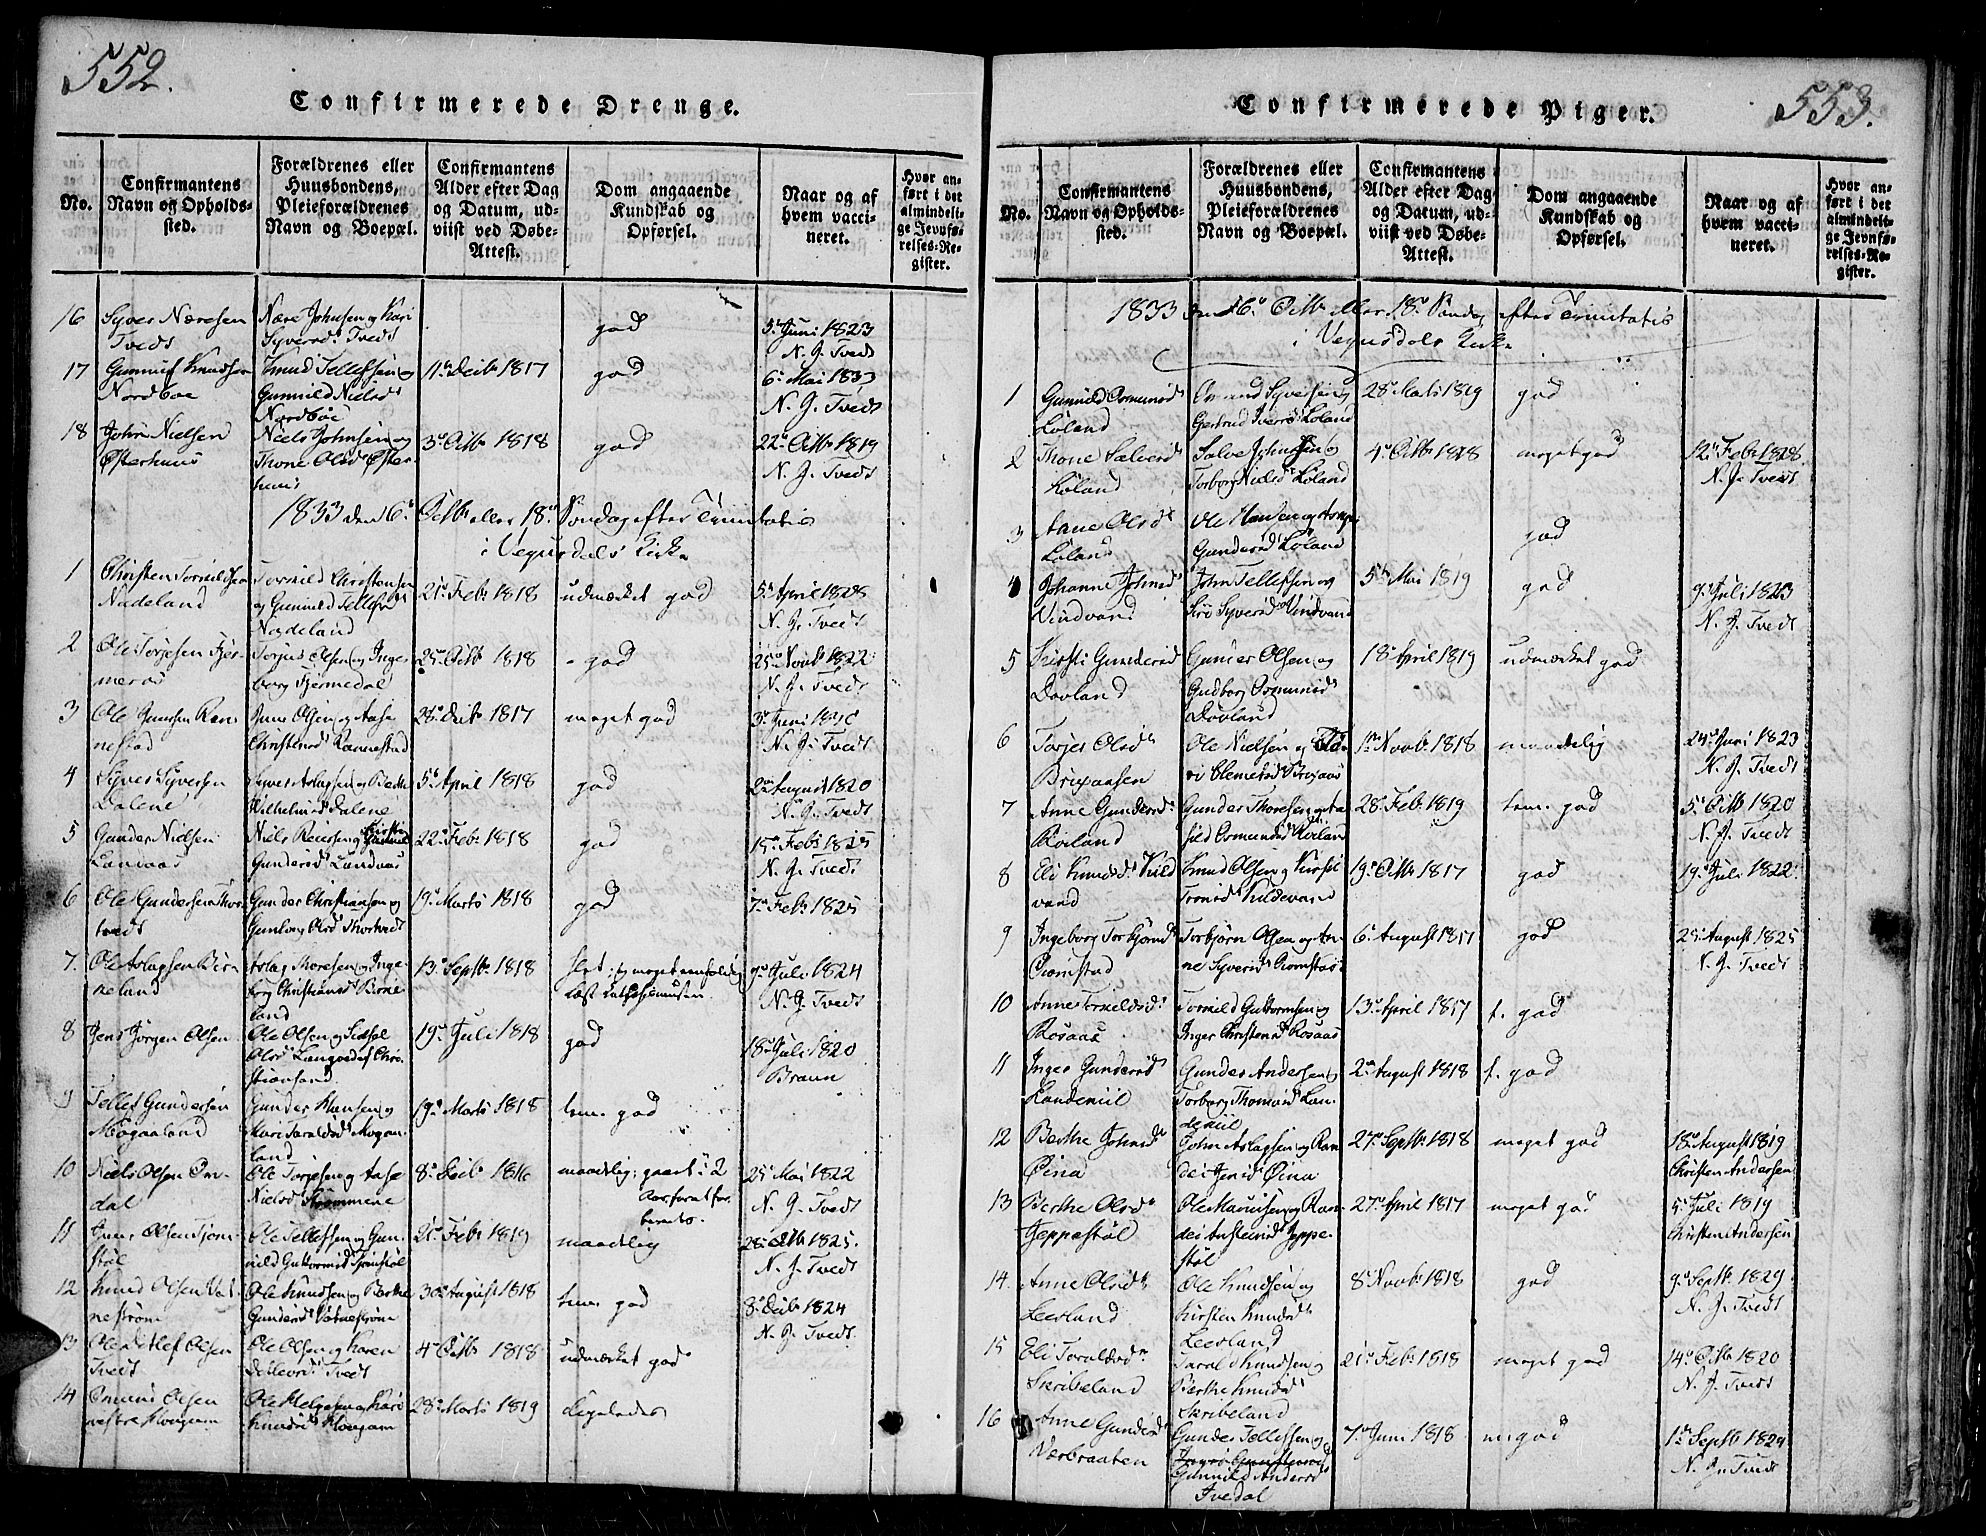 552.
Confirmerede Drenge.
No.
Confirmantens
Navn og Opholds-
sted.
Forældrenes eller
Huusbondens,
Pleieforældrenes
Navn og Boepæl.
Confirmantens
Alder efter Dag
og Datum, ud-
viist ved Døbe-
Attest.
Dom angaaende
Kundskab og
Opførsel.
Naar og af
hvem vacci-
neret.
Hvor an-
ført i det
almindeli-
ge Jevnfø-
relses-Re-
gister.
16
Syver Næresen
Tvedt
Nære Johnsen og Kari
Syversd: Tvedt
god
5 Juni 1823
N. J. Tvedt
17
Gunnuf Knudsen
Nordbøe
Knud Tellefsen og
Gunnild Nielsd
Nordbøe
11 Decbr 1817
god
6 Mai 1833
N. J. Tvedt
18
John Nielsen
Østerhuus
Niels Johnsen og
Thone Olsd Øster-
huus
3 Octbr 1818
god
22 Octbr 1819
N. J. Tvedt
1833 den 6 Octbr eller 18 Søndag efter Trinitatis
i Vegusdals Kirke
1
Christen Tormildsen
Nadeland
Tormild Christensen
og Gunnild Tellefsd
Nadeland
21 Febr 1818
udmærket god
5 April 1828
N. J. Tvedt
2
Ole Torjesen Fjer-
meros
Torjus Olsen og Inge-
borg Fjermedal
25 Octbr 1818
god
25 Novbr 1822
N. J. Tvedt
3
Ole Jensen Ran-
nestad
Jens Olsen og Aase
Christensd Rannestad
28 Decbr 1817
meget god
3 Juni 1818
N. J. Tvedt
4
Syver Syversen
Dalene
Syver Aslagsen og Berthe
Wilhelmsd Dalene
5 April 1818
god
August 1820
N. J. Tvedt
5
Gunder Nielsen
Landaas
Niels Reersen og
Gundersd Landaas
22 Febr 1818
god
15 Febr 1825
N. J. Tvedt
6
Ole Gundersen Thor-
tvedt
Gunder Christiansen og
Gunlaug Olsd Thortvedt
19 Marts 1818
god
7 Febr 1825
7.
Ole Aslagsen Bir-
keland
Aslag Thoresen og Inge-
borg Christiansd Birke
land
13 Septbr 1818
slet; og meget eenfoldig
Læst Cathechismusen
9 Juli 1824
N. J. Tvedt
8
Jens Jørgen Olsen
Ole Olsen og Sidsel
Olsd Langved af Chri-
stiansand.
19 Juli 1818
god
18 Juli 1820
Bruun
9
Tellef Gundersen
Mogaaland
Gunder Hansen og
Kari Taraldsd Mogaa-
land
19 Marts 1818
tem. god
10
Niels Olsen Om-
dal
Ole Torjesen og Aase
Nielsd Strømmene
8 Decbr 1816
maadelig; gaaet i 2
Aar forat for-
beredes.
25 Mai 1822
N. J. Tvedt
11
Jens Olsen Tjom-
støl
Ole Tellefsen og Gun-
nild Guttormsd Tjomstøl
21 Febr 1819
maadelig
28 Octbr 1825.
N. J. Tvedt
12
Knud Olsen Vat-
nestrøm
Ole Knudsen og Berthe
Gundersd Vatnestrøm
30 August 1818
tem. god
8 Decbr 1824
N. J. Tvedt.
13
Ole Detlef Olsen
Tvedt
Ole Olsen og Karen
Detlevsd Tvedt
4 Octbr 1818
udmærket god
14
Omund Olsen
vestre Hougam
Ole Helgesen og Kari
Knudsd Hougam
28 Marts 1819
ligeledes
553.
Confirmerede Piger.
No.
Confirmantens
Navn og Opholds-
sted.
Forældrenes eller
Huusbondens,
Pleieforældrenes
Navn og Boepæl.
Confirmantens
Alder efter Dag
og Datum, ud-
viist ved Døbe-
Attest.
Dom angaaende
Kundskab og
Opførsel.
Naar og af
hvem vacci-
neret.
Hvor an-
ført i det
almindeli-
ge Jevnfø-
relses-Re-
gister.
1833 den 6 Octbr eller 18 Søndag efter Trinitatis
i Vegusdals Kirke
1
Gunnild Osmunsd
Løland
Osmund Syversen og
Gertrud Iversd Løland
28 Marts 1819
god
2
Thone Salvesd
Løland
Salve Johnsen og
Torborg Nielsd Løland
4 Octbr 1818
meget god
12 Febr 1828
N. J. Tvedt
3
Aane Olsd
Løland
Ole Hansen og
Gundersd Løland
god
4
Johanne Johnsd
Vindvand
John Tellefsen og
Siri Syversd Vindvand
5 Mai 1819
god
9 Juli 1823
N. J. Tvedt
5
Kirsti Gundersd
Dovland
Gunder Olsen og
Gudborg Osmunsd
Dovland
18 April 1819
udmærket god
6
Torjer Olsd
Brixaasen
Ole Nielsen og
Clemetsd Brixaas
1 Novbr 1818
maadelig
24 Juni 1823
N. J. Tvedt
7
Anne Gundersd
Røiland
Gunder Thoresen og Aa-
sild Osmundsd Røiland
28 Febr 1819
tem. god
5 Octbr 1820
N. J. Tvedt
8
Eli Knudsd Kild
vand
Knud Olsen og Kirsti
Tronsd Kildevand
19 Octbr 1817
god
19 Juli 1822
9
Ingeborg Torbjørnsd
Oiomstad
Torbjørn Olsen og An-
ne Syversd Oiomstad
6 August 1817
god
25 August 1825
N. J. Tvedt
10
Anne Tormildsd
Rosaas
Tormild Guttormsen og
Inger Christensd Rosaas
13 April 1817
t. god
11
Inger Gundersd
Landemiil
Gunder Andersen og
Torborg Thomasd Lan-
demiil
2 August 1818
t. god
12
Berthe Johnsd
Øina
John Aslagsen og Ran-
dei Jensd Øina
27 Septbr 1818
meget god
18 August 1819
Christen Andersen
13
Berthe Olsd
Jeppestøl
Ole Knudsen og Ran-
dei Austensd Jeppe-
støl
27 April 1817
meget god
5 Juli 1819
Christen Andersen
14.
Anne Olsd
Leesland
Ole Knudsen og
Kirsten Knudsd
Leesland
8 Novbr 1818
god
9 Septbr 1829
N. J. Tvedt
15
Eli Taraldsd
Skribeland
Tarald Knudsen og
Berthe Knudsd
Skribeland
21 Febr 1818
meget god
14 Octbr 1820
N. J. Tvedt
16
Anne Gundersd
Værbraaten
Gunder Tellefsen og
Gunnild Andersd
Ivedal
7 Juni 1818
m. god
1 Septbr 1824
N. J. Tvedt